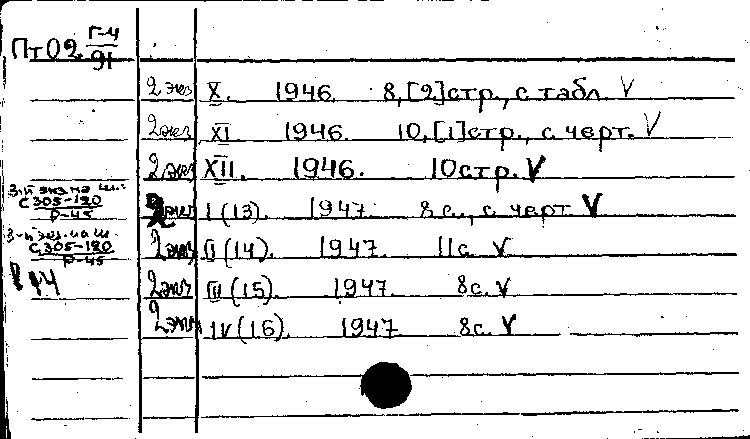 Пт02 Г-4
91
2 экз X. 1946. 8, [2] стр., с табл. V
2 экз XI. 1946. 10, [1] стр., с черт. V
2 экз XII. 1946. 10 стр. V
3-й экз на ш.:
С 305-120
Р-45
2 экз I (13). 1947. 8 с., с черт V
3-й экз. на ш.
С 305-180
Р-45
2 экз II (14). 1947. 11 с. V
2 экз III (15). 1947. 8 с. V
2 экз IV (16). 1947 8 с. V